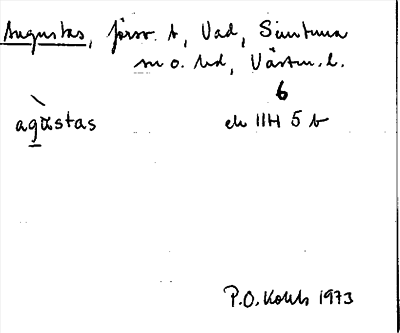 Augustas, försv. t, Vad, Simtuna
sn o. hd, Västm. l.
6
agustas ek 11H 5 b
P.O. Kolds 1973